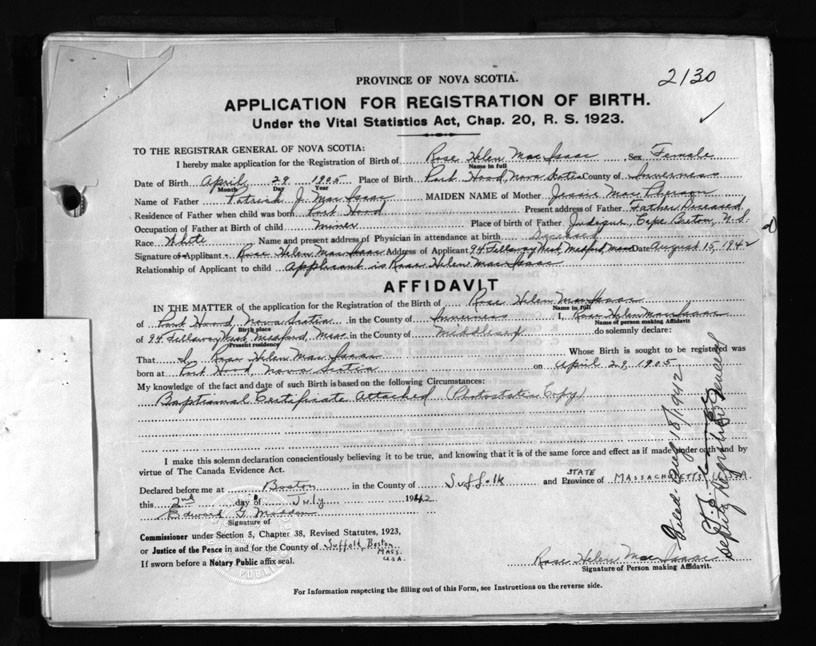 2130
PROVINCE OF NOVA SCOTIA.
APPLICATION FOR REGISTRATION OF BIRTH.
Under the Vital Statistics Act, Chap. 20, R. S. 1923.
TO THE REGISTRAR GENERAL OF NOVA SCOTIA:
I hereby make application for the Registration of Birth of Rose Helen MacIsaac Sex Female
Name in full
Date of Birth April 29 1905 Place of Birth Port Hood, Nova Scotia County of Inverness
Month Day Year
Name of Father Patrick J. MacIsaac MAIDEN NAME of Mother Jessie MacPherson
Residence of Father when child was born Port Hood Present address of Father Father Deceased
Occupation of Father at Birth of child Miner Place of birth of Father Judique, Cape Breton, N.S.
Race White Name and present address of Physician in attendance at birth Deceased
Signature of Applicant Rose Helen MacIsaac Address of Applicant 94 Fellsway West, Medford Mass Date August 15, 1942
Relationship of Applicant to child Applicant is Rose Helen MacIsaac
AFFIDAVIT
IN THE MATTER of the application for the Registration of the Birth of Rose Helen MacIsaac
Name in full
of Port Hood, Nova Scotia in the County of Inverness I, Rose Helen MacIsaac
Birth place Name of person making Affidavit
of 94 Fellsway West, Medford, Mass in the County of Middlesex do solemnly declare:
Present residence
That I, Rose Helen MacIsaac Whose Birth is sought to be registered was
born at Port Hood, Nova Scotia on April 29, 1905
My knowledge of the fact and date of such Birth is based on the following Circumstances:
Baptismal Certificate Attached (Photostatic Copy)
I make this solemn declaration conscientiously believing it to be true, and knowing that it is of the same force and effect as if made under oath and by
virtue of The Canada Evidence Act.
Declared before me at Boston in the County of Suffolk and STATE Province of MASSACHUSETTS, U.S.A.
this 2nd day of July 1942
Edward G. Madden
Signature of
Commissioner under Section 5, Chapter 38, Revised Statutes, 1923,
or Justice of the Peace in and for the County of Suffolk, Boston, MASS. U.S.A.
If sworn before a Notary Public affix seal.
Rose Helen MacIsaac
Signature of Person making Affidavit.
For Information respecting the filling out of this Form, see Instructions on the reverse side.
Filed Aug 18/1942
Deputy Registrar General